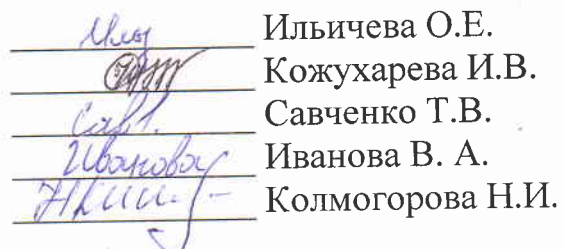 Ильичева О.Е.
Кожухарева И.В.
Савченко Т.В.
Ивановой Иванова В. А.
Колмогорова Н.И.